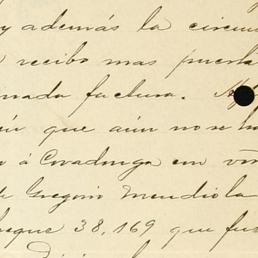 y además la circun
recibo mas puerta
nada factura.
que aún no se ha
á Covadonga en
Gregorio Mendiola
que 38,169 que fu